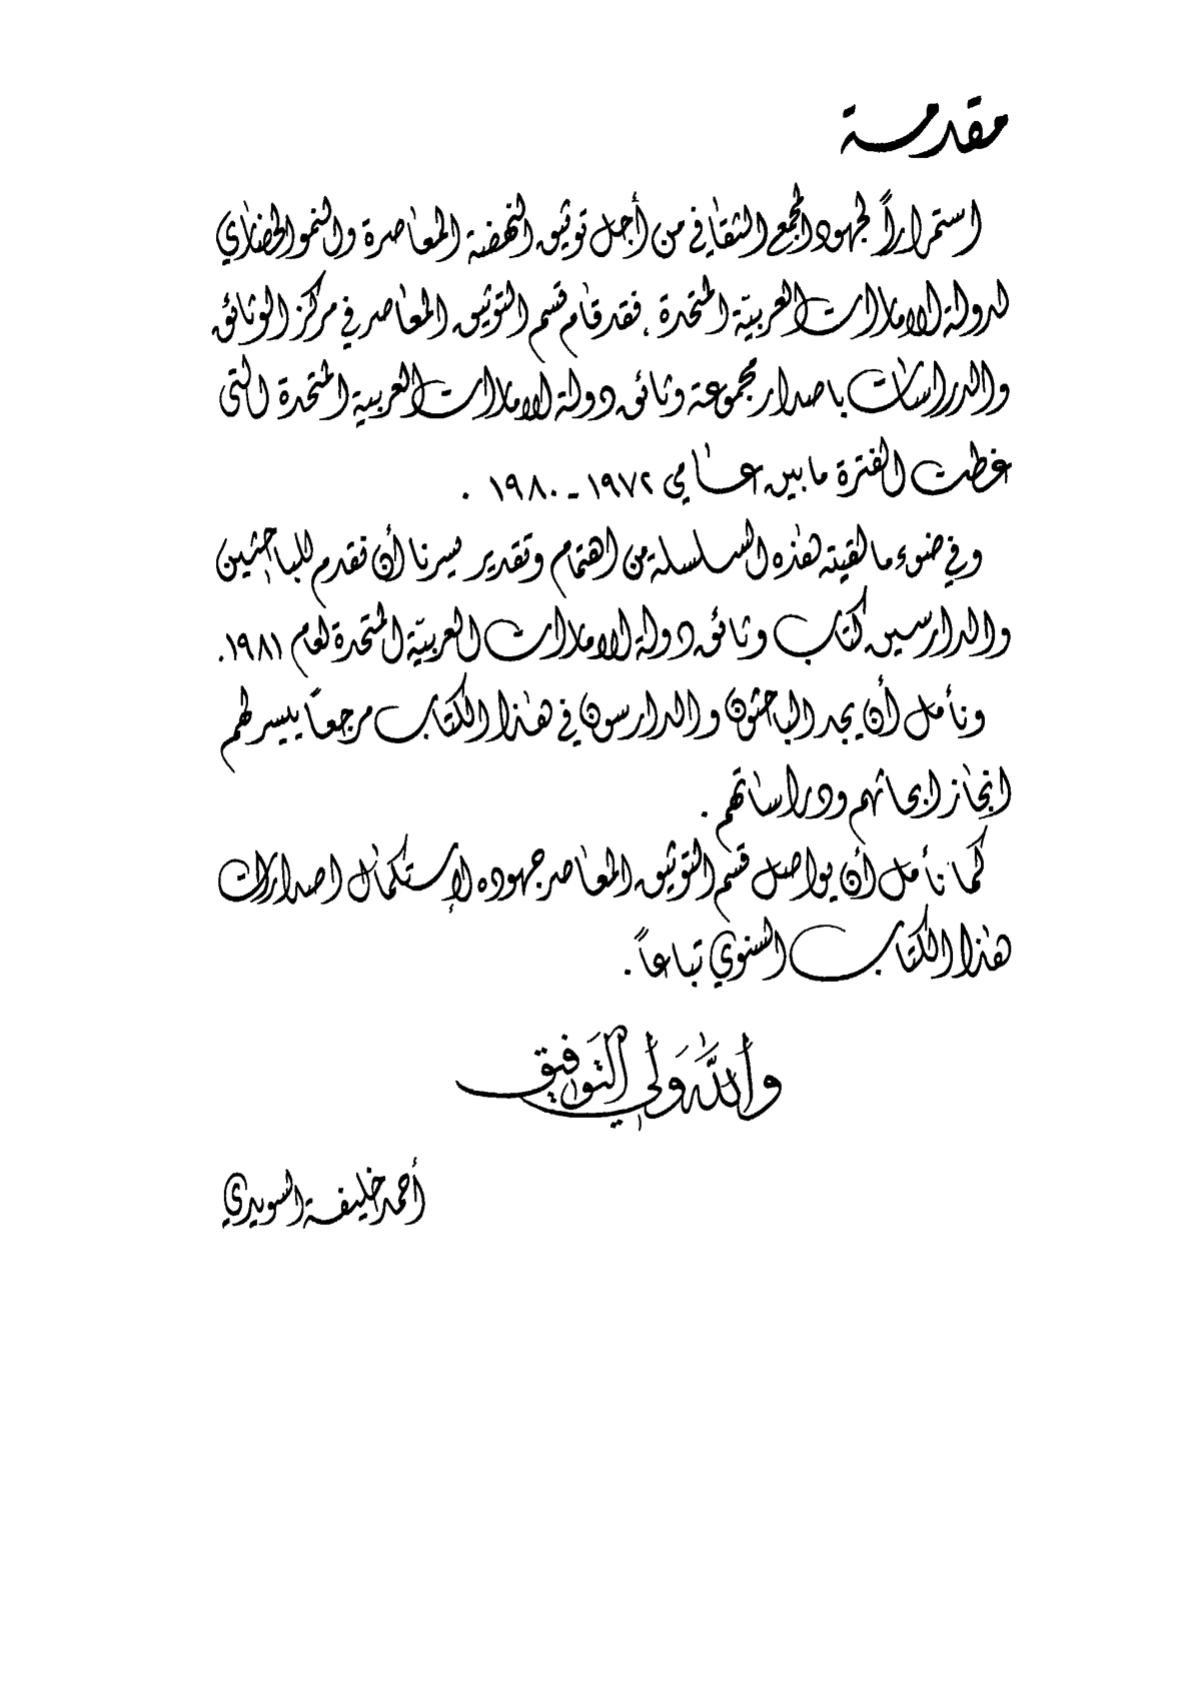 مقدمة
استمراراً لجهود المجمع الثقافي من أجل توثيق النهضة المعاصرة والنمو الحضاري
لدولة الامارات العربيّة المتحدة ، فقد قام قسم التوثيق المعاصر في مركز الوثائق
والدراسات باصدار مجموعة وثائق دولة الامارات العربية المتحدة التي
غطت الفترة ما بين عامي ١٩٧٢ - ١٩٨٠ .
وفي ضوء ما لقيته هذه السلسلة من اهتمام وتقدير يسرنا أن نقدم للباحثين
والدارسين كتاب وثائق دولة الامارات العربيّة المتحدة لعام ١٩٨١ .
ونأمل أن يجد الباحثون والدارسون في هذا الكتاب مرجعاً ييسر لهم
انجاز ابحاثهم ودراساتهم .
كما نأمل أن يواصل قسم التوثيق المعاصر جهوده لإستكمال اصدارات
هذا الكتاب السنوي تباعاً .
وَاللَّهُ وَلِي التَّوفِيق
أحمد خليفة السويدي